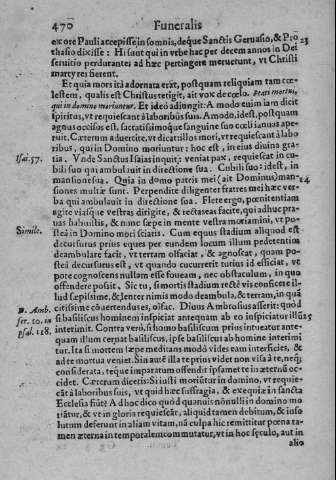 470 Funeralis
ex ore Pauli accepisse in somnis, deque Sanctis Geruasio, & Pro
thasio dixisse: Hi sunt qui in vrbe hac per decem annos in Dei 23
seruitio perdurantes ad hæc pertingere meruerunt, vt Christi
martyres fierent.
Et quia mors ita adornata erat, postquam reliquiam tam cœ
lestem, qualis est Christus tetigit, ait vox de cælo. Beati mortui,
qui in domino moriuntur. Et ideo adiungit: A modo enim iam dicit
spiritus, vt requiescant à laboribus suis. A modo, id est, postquam
agnus occisus est, sacratissimoque sanguine suo cœli ianuas ape
ruit. Cæterum aduertite, vt dicat illos mori, vt requiescant à labo
ribus, qui in Domino moriuntur: hoc est, in eius diuina gra-
Isai. 57. tia. Vnde Sanctus Isaias inquit: veniat pax, requiescat in cu-
bili suo qui ambulauit in directione sua. Cubili suo: id est, in
mansione sua. Quia in domo patris mei (ait Dominus) man- 24
siones multæ sunt. Perpendite diligenter fratres mei hæc ver-
ba qui ambulauit in directione sua. Flete ergo, pœnitentiam
agite viasque vestras dirigite, & rectas eas facite, qui adhuc pra-
uas habuistis, & nunc sæpe in mente vestra moriamini, vt po-
Simile. stea in Domino mori sciatis. Cum equus stadium aliquod est
decursurus prius eques per eundem locum illum pedetentim
deambulare facit, vt terram olfaciat, & agnoscat, quam po-
stea decursurus est, vt quando cucurrerit tutius id efficiat, vt
pote cognoscens nullam esse foueam, nec obstaculum, in quo
offendere possit. Sic tu, si mortis stadium rectè vis conficere il-
lud sæpissime, & lenter nimis modo deambula, & terram, in qua
D. Amb. citissime cōuertendus es, olfac. Diuus Ambrosius asserit: quod
ser. 10. in si basiliscus hominem inspiciat antequam ab eo inspiciatur illū 25
psal. 118. interimit. Contra verò, si homo basiliscum prius intueatur ante-
quam illum cernat basiliscus, ipse basiliscus ab homine interimi
tur. Ita si mortem sæpe meditans modò vides eam interficies, &
ad te mortua veniet. Sin autē illa te prius videt non visa à te, neq;
considerata, teque imparatum offendit ipsamet te in æternū oc-
cidet. Cæterum dicetis: Si iusti moriūtur in domino, vt requie-
cāt à laboribus suis, vt quid hæc suffragia, & exequiæ in sancta
Ecclesia fiūt? Ad hoc dico quòd quamuis nōnulli in domino mo
riātur, & vt in gloria requiescāt, aliquid tamen debitum, & inso
lutum deferunt in aliam vitam, nā culpa hic remittitur pœna ta-
men æterna in temporalem commutatur, vt in hoc sæculo, aut in
alio